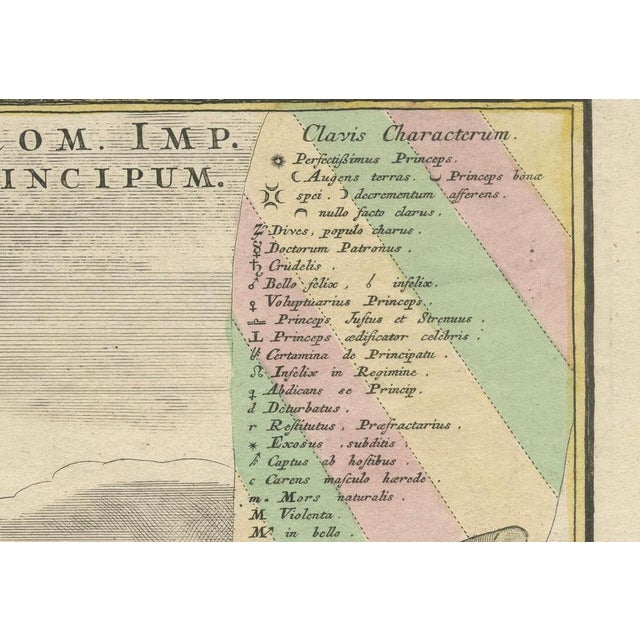 ROM. IMP.
INCIPUM.
Clavis Characterum.
☀ Perfectißimus Princeps.
☾ Augens terras. Princeps bonæ
spei. ☽ decrementum afferens.
nullo facto clarus.
♃ Dives, populo charus.
☿ Doctorum Patronus.
♄ Crudelis.
♂ Bello felix, infelix.
♀ Voluptuarius Princeps.
♎ Princeps Justus et Strenuus
Princeps ædificator celebris.
Certamina de Principatu.
☊ Infelix in Regimine.
Abdicans se Princip.
d Deturbatus.
r Restitutus, Præfractarius.
✶ Exosus subditis
Captus ab hostibus.
c Carens masculo hærede.
m. Mors naturalis.
M Violenta.
M in bello.